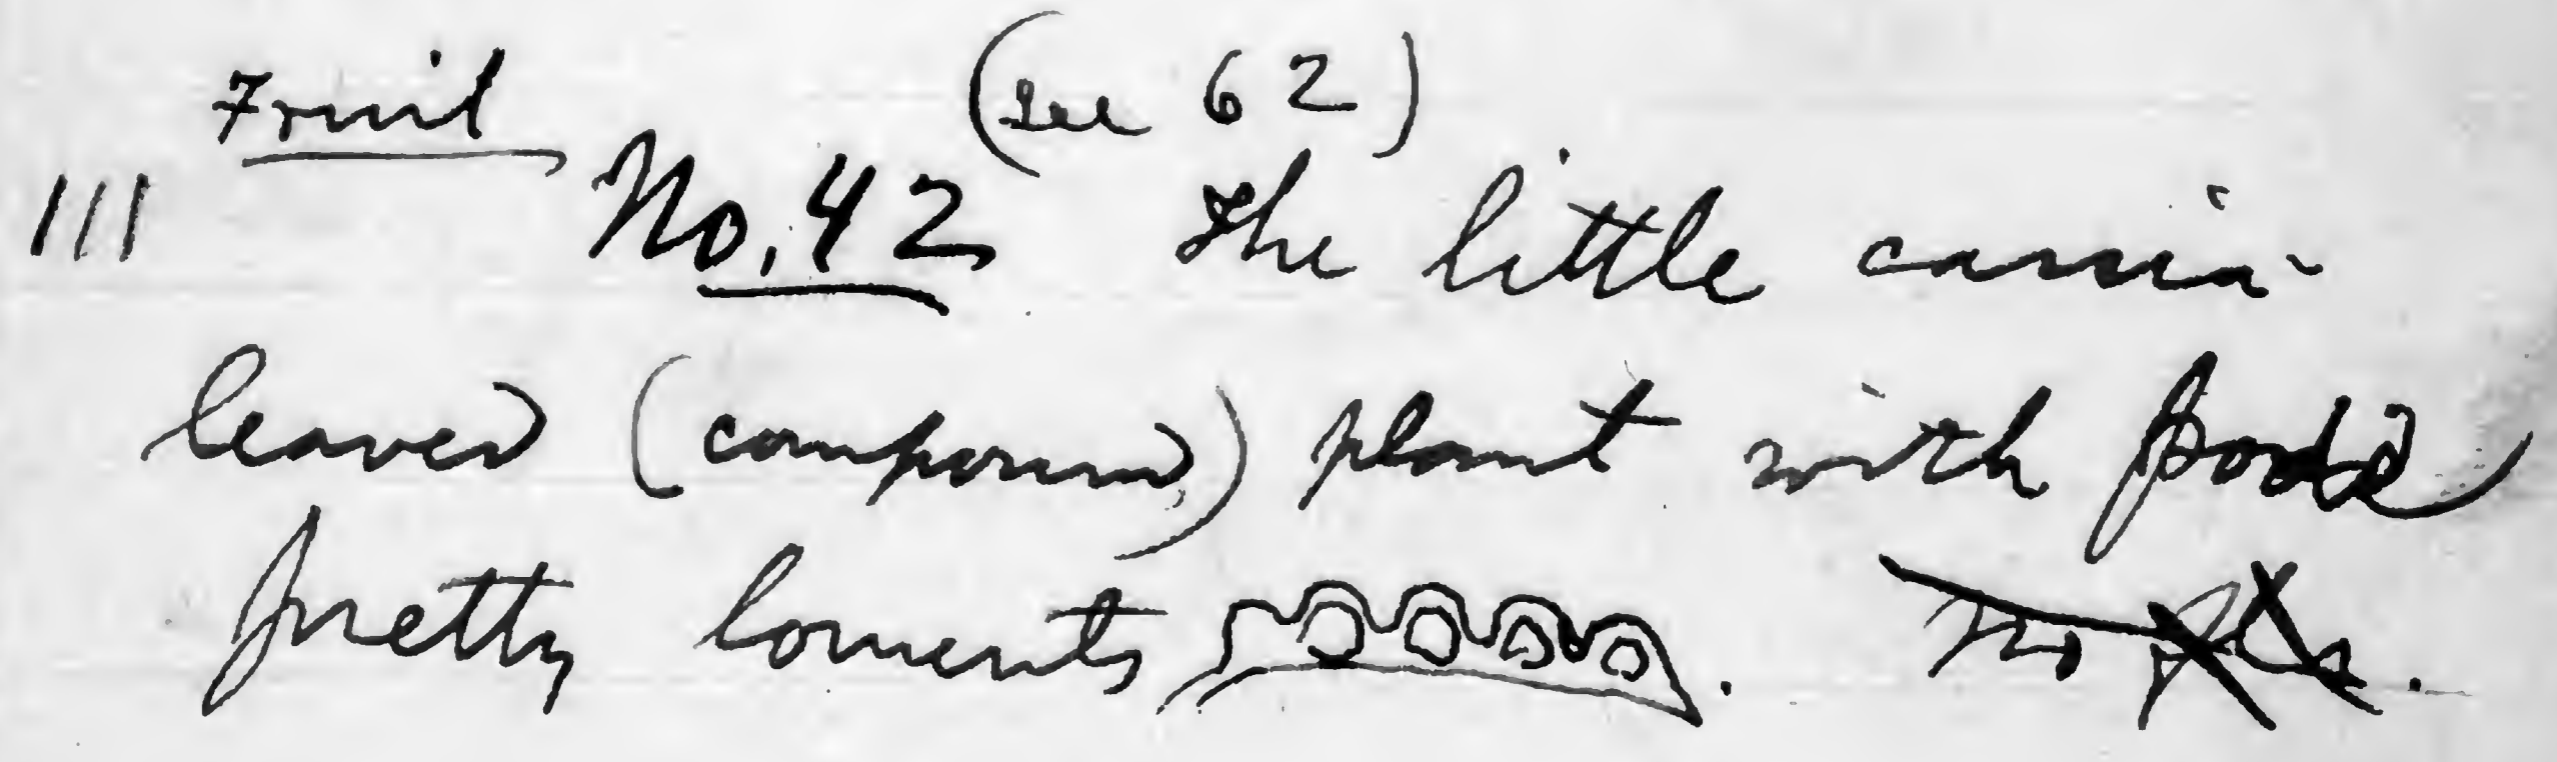 Fruit (see 62)
111 No. 42 The little cassia-
leaved (compound) plant with pods
pretty loments . No